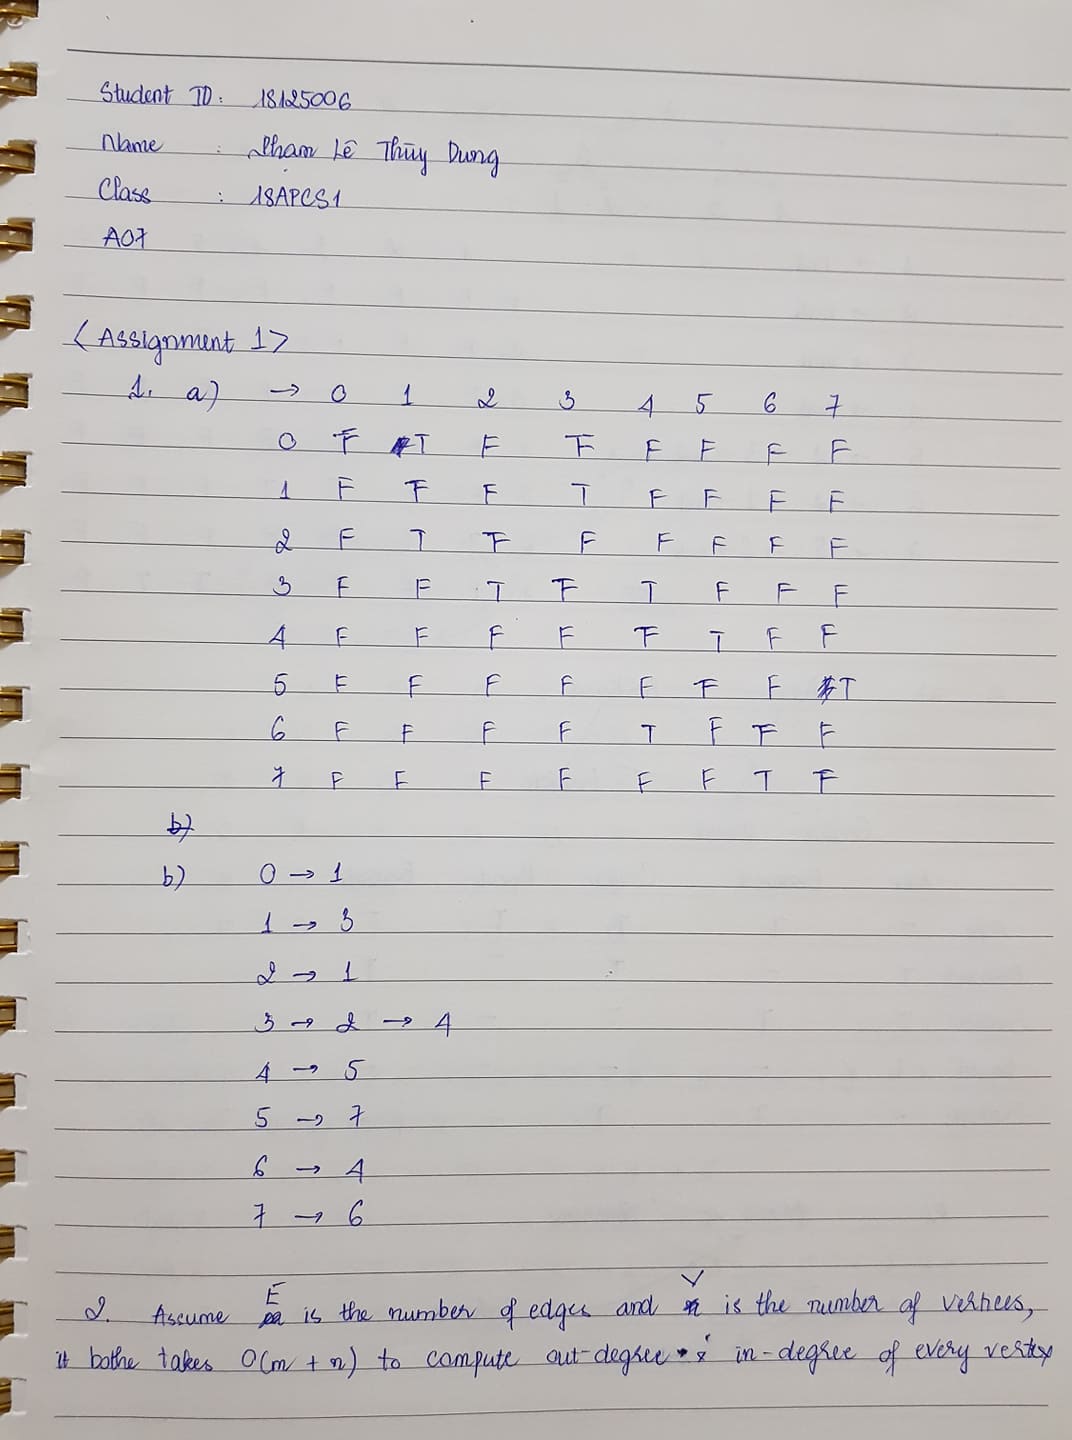 Student ID: 18125006
Name : Phạm Lê Thùy Dung
Class : 18APCS1
A07
<Assignment 1>
1. a) → 0 1 2 3 4 5 6 7
0 F T F F F F F F
1 F F F T F F F F
2 F T F F F F F F
3 F F T F T F F F
4 F F F F F T F F
5 F F F F F F F T
6 F F F F T F F F
7 F F F F F F T F
b)
b) 0 → 1
1 → 3
2 → 1
3 → 2 → 4
4 → 5
5 → 7
6 → 4
7 → 6
2. Assume E is the number of edges and V is the number of vertices,
it bothe takes O(m + n) to compute out-degree in-degree of every vertex